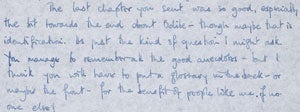 The last chapter you sent was so good, especially
the bit towards the end about Police - though maybe that is
identification. Is just the kind of question I might ask.
You manage to remember all the good anecdotes - but I
think you will have to put a glossary in the back - or
maybe the front - for the benefit of people like me, if no
one else!